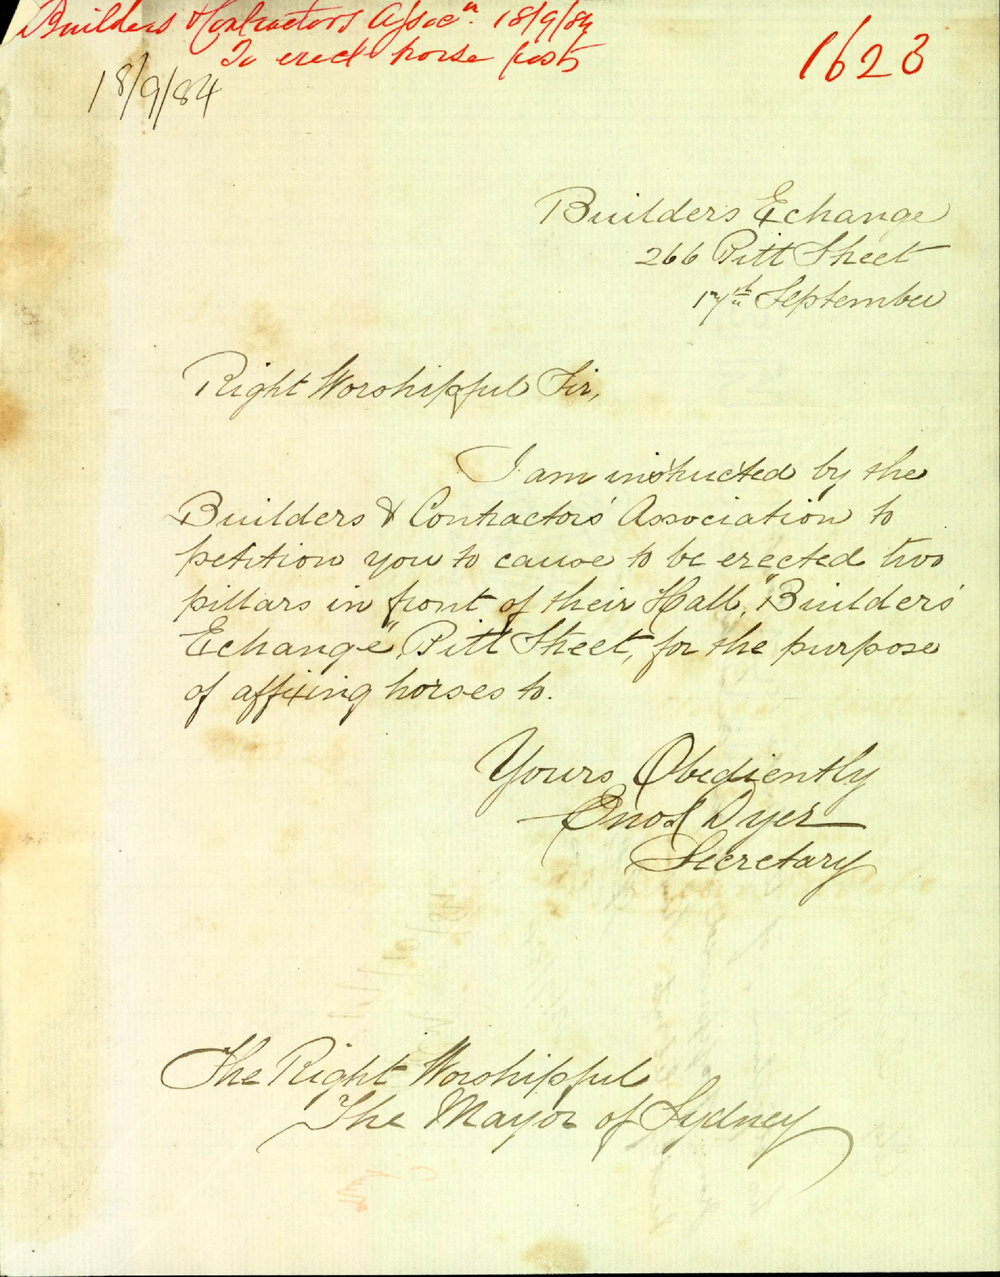 Builders & Contractors Assocn. 18/9/84
To erect horse posts
1623
18/9/84
Builders Echange
266 Pitt Street
17th September
Right Worshipful Sir,
I am instructed by the
Builders & Contractors' Association to
petition you to cause to be erected two
pillars in front of their Hall, "Builders'
Echange", Pitt Street, for the purpose
of affixing horses to.
Yours Obediently
Enos Dyer
Secretary
The Right Worshipful
The Mayor of Sydney